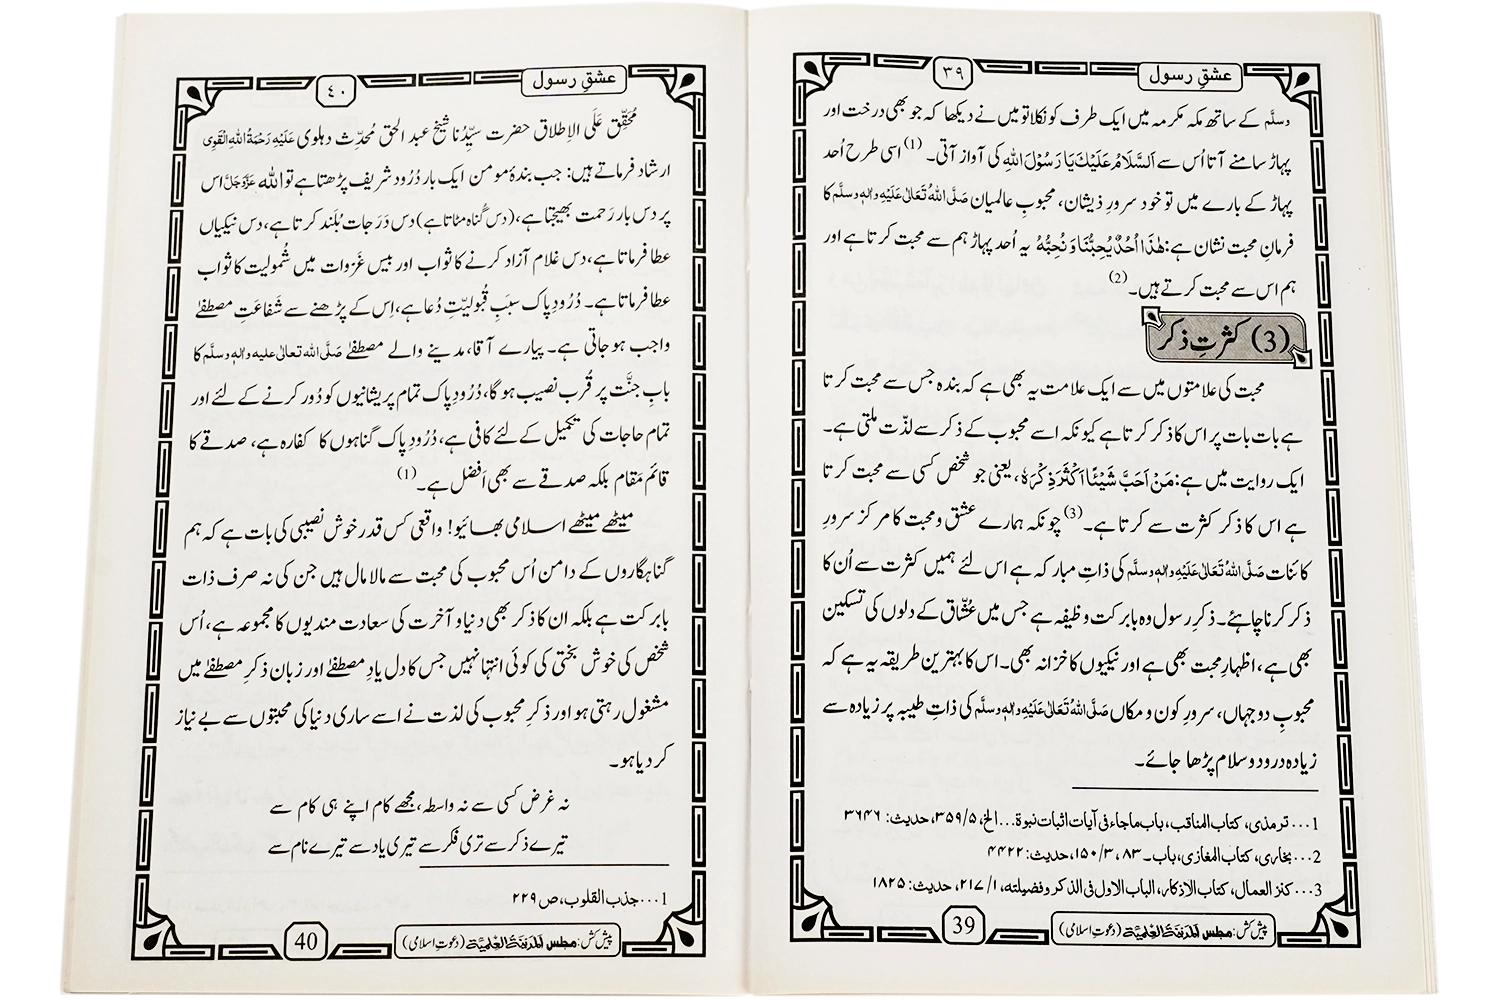 عشقِ رسول
۳۹
وسلَّم کے ساتھ مکہ مکرمہ میں ایک طرف کو نکلا تو میں نے دیکھا کہ جو بھی درخت اور
پہاڑ سامنے آتا اُس سے اَلسَّلَامُ عَلَیْكَ یَا رَسُوْلَ اللهِ کی آواز آتی۔ (1) اسی طرح اُحد
پہاڑ کے بارے میں تو خود سرورِ ذیشان، محبوبِ عالمیان صَلَّی اللهُ تَعَالٰی عَلَیْهِ واٰلِهٖ وسلَّم کا
فرمانِ محبت نشان ہے: هٰذَا اُحُدٌ یُحِبُّنَا وَ نُحِبُّهٗ یہ اُحد پہاڑ ہم سے محبت کرتا ہے اور
ہم اس سے محبت کرتے ہیں۔ (2)
(3) کثرتِ ذکر
محبت کی علامتوں میں سے ایک علامت یہ بھی ہے کہ بندہ جس سے محبت کرتا
ہے بات بات پر اس کا ذکر کرتا ہے کیونکہ اسے محبوب کے ذکر سے لذّت ملتی ہے۔
ایک روایت میں ہے: مَنْ اَحَبَّ شَیْئًا اَکْثَرَ ذِکْرَهٗ، یعنی جو شخص کسی سے محبت کرتا
ہے اس کا ذکر کثرت سے کرتا ہے۔ (3) چونکہ ہمارے عشق و محبت کا مرکز سرورِ
کائنات صَلَّی اللهُ تَعَالٰی عَلَیْهِ واٰلِهٖ وسلَّم کی ذاتِ مبارکہ ہے اس لئے ہمیں کثرت سے اُن کا
ذکر کرنا چاہئے۔ ذکرِ رسول وہ بابرکت وظیفہ ہے جس میں عشّاق کے دلوں کی تسکین
بھی ہے، اظہارِ محبت بھی ہے اور نیکیوں کا خزانہ بھی۔ اس کا بہترین طریقہ یہ ہے کہ
محبوبِ دو جہاں، سرورِ کون و مکاں صَلَّی اللهُ تَعَالٰی عَلَیْهِ واٰلِهٖ وسلَّم کی ذاتِ طیبہ پر زیادہ سے
زیادہ درود و سلام پڑھا جائے۔
1...ترمذی، کتاب المناقب، باب ماجاء فی آیات اثبات نبوۃ...الخ، ۵/۳۵۹، حدیث: ۳۶۴۶
2...بخاری، کتاب المغازی، باب۔۸۳، ۳/۱۵۰، حدیث: ۴۴۲۲
3...کنز العمال، کتاب الاذکار، الباب الاول فی الذکر وفضیلته، ۱/۲۱۷، حدیث: ۱۸۲۵
پیش کش: مجلس اَلْمَدِیْنَةُ الْعِلْمِیَّة (دعوتِ اسلامی)
39
عشقِ رسول
٤٠
مُحَقِّق عَلَی الاِطلاق حضرت سیِّدُنا شیخ عبد الحق مُحدِّث دہلوی عَلَیْهِ رَحْمَةُ اللهِ الْقَوِی
ارشاد فرماتے ہیں: جب بندۂ مومن ایک بار دُرُود شریف پڑھتا ہے تو الله عَزَّوَجَلَّ اس
پر دس بار رَحمت بھیجتا ہے، (دس گُناہ مٹاتا ہے) دس دَرَجات بُلَند کرتا ہے، دس نیکیاں
عطا فرماتا ہے، دس غلام آزاد کرنے کا ثواب اور بیس غَزَوات میں شُمولیت کا ثواب
عطا فرماتا ہے۔ دُرُودِ پاک سببِ قُبولیّتِ دُعا ہے، اِس کے پڑھنے سے شَفاعَتِ مصطفٰے
واجب ہو جاتی ہے۔ پیارے آقا، مدینے والے مصطفٰے صَلَّی الله تعالٰی علیه واٰلہٖ وسلَّم کا
بابِ جنَّت پر قُرب نصیب ہو گا، دُرُودِ پاک تمام پریشانیوں کو دُور کرنے کے لئے اور
تمام حاجات کی تکمیل کے لئے کافی ہے، دُرُودِ پاک گناہوں کا کفارہ ہے، صدقے کا
قائم مَقام بلکہ صدقے سے بھی اَفضل ہے۔ (1)
میٹھے میٹھے اسلامی بھائیو! واقعی کس قدر خوش نصیبی کی بات ہے کہ ہم
گناہگاروں کے دامن اُس محبوب کی محبت سے مالا مال ہیں جن کی نہ صرف ذات
بابرکت ہے بلکہ ان کا ذکر بھی دنیا و آخرت کی سعادت مندیوں کا مجموعہ ہے، اُس
شخص کی خوش بختی کی کوئی انتہا نہیں جس کا دل یادِ مصطفٰے اور زبان ذکرِ مصطفٰے میں
مشغول رہتی ہو اور ذکرِ محبوب کی لذت نے اسے ساری دنیا کی محبتوں سے بے نیاز
کر دیا ہو۔
نہ غرض کسی سے نہ واسطہ، مجھے کام اپنے ہی کام سے
تیرے ذکر سے تری فکر سے تیری یاد سے تیرے نام سے
1...جذب القلوب، ص ۲۲۹
پیش کش: مجلس اَلْمَدِیْنَةُ الْعِلْمِیَّة (دعوتِ اسلامی)
40